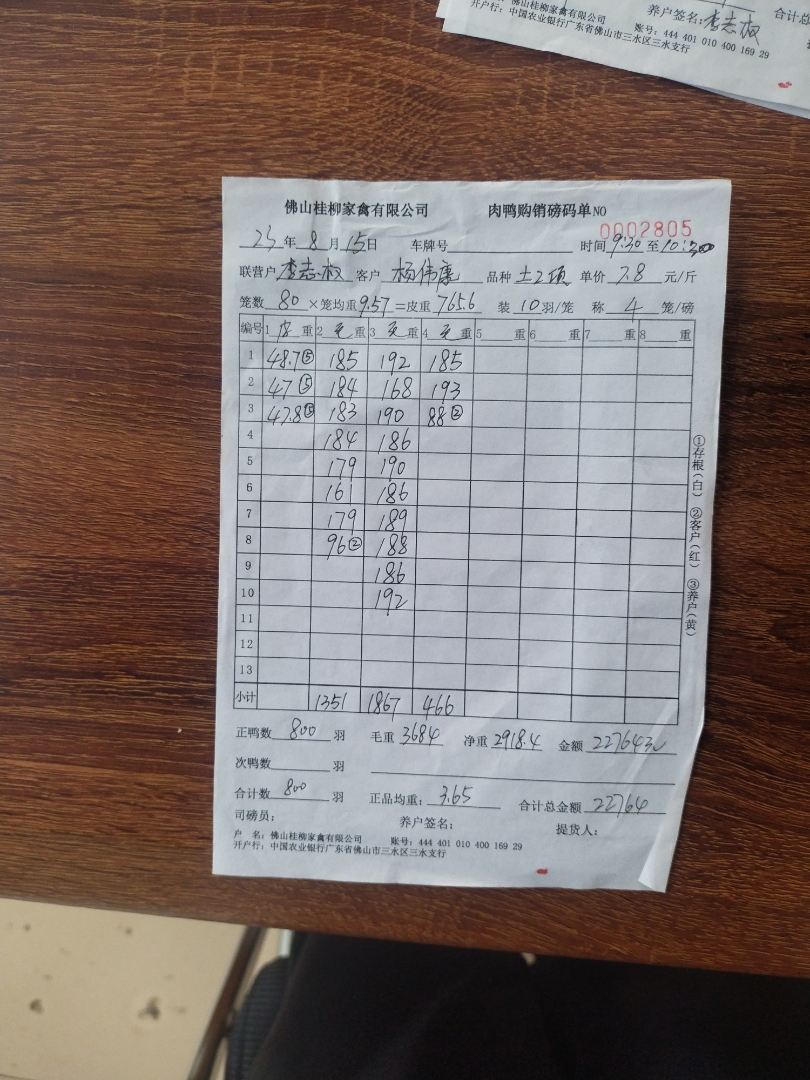 佛山桂柳家禽有限公司 养户签名:李志权 合计总
开户行:中国农业银行广东省佛山市三水区三水支行 账号:444 401 010 400 169 29
佛山桂柳家禽有限公司 肉鸭购销磅码单NO 0002805
23年8月15日 车牌号 时间9:30至10:30
联营户李志权 客户 杨伟康 品种 土2项 单价 7.8 元/斤
笼数 80 ×笼均重9.57=皮重765.6 装 10 羽/笼 称 4 笼/磅
编号 1 皮 重 2 毛 重 3 毛 重 4 毛 重 5 重 6 重 7 重 8 重
1 48.7⑤ 185 192 185
2 47⑤ 184 168 193
3 47.8⑤ 183 190 88②
4 184 186
5 179 190
6 161 186
7 179 189
8 96② 188
9 186
10 192
11
12
13
小计 1351 1867 466
正鸭数 800 羽 毛重 3684 净重 2918.4 金额 22764
次鸭数 羽
合计数 800 羽 正品均重: 3.65 合计总金额 22764
司磅员: 养户签名: 提货人:
户 名:佛山桂柳家禽有限公司 账号:444 401 010 400 169 29
开户行:中国农业银行广东省佛山市三水区三水支行
①存根(白) ②客户(红) ③养户(黄)